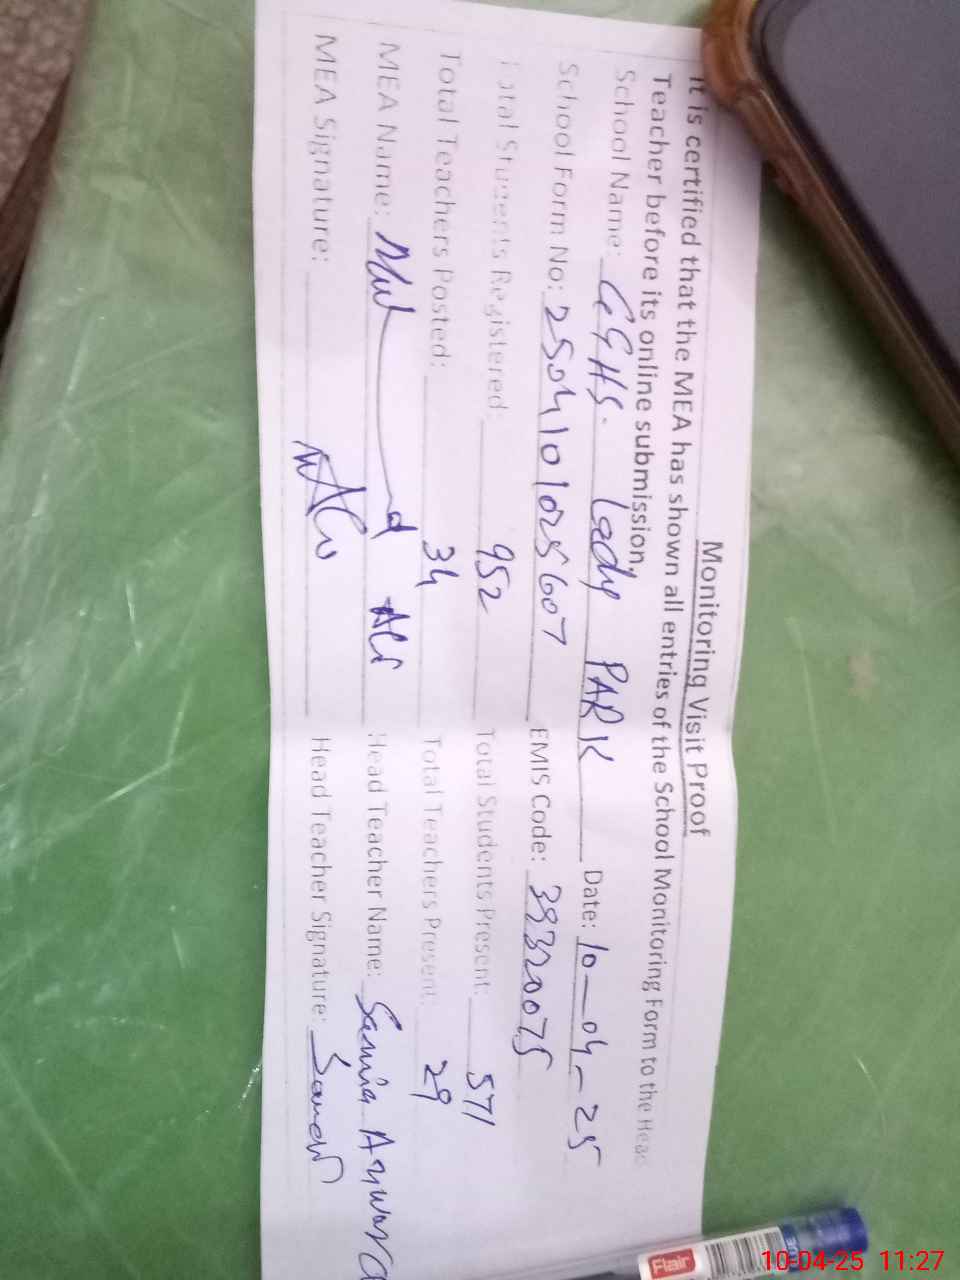 Monitoring Visit Proof
It is certified that the MEA has shown all entries of the School Monitoring Form to the Head
Teacher before its online submission.
School Name: GGHS. Lady PARK Date: 10-04-25
School Form No: 2504101025607 EMIS Code: 38320075
Total Students Registered: 952 Total Students Present: 571
Total Teachers Posted: 34 Total Teachers Present: 29
MEA Name: Ali Head Teacher Name: Samia
MEA Signature: Head Teacher Signature:
Flair
10-04-25 11:27